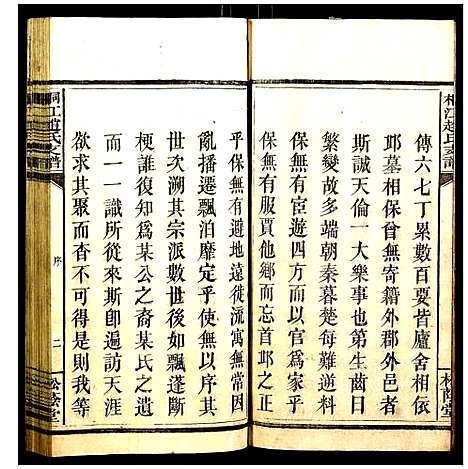 桐江趙氏支譜
松蔭堂
傳六七丁累數百要皆廬舍相依
邱墓相保曾無寄籍外郡外邑者
斯誠天倫一大樂事也第生齒日
繁變故多端朝秦暮楚每難逆料
保無有宦遊四方家於官而不歸
保無有服賈他鄉而忘首邱之心
乎保無有避地遠徙流寓無常因
亂播遷飄泊靡定乎使無以
世次溯其宗派數世後如飄蓬斷
梗誰復知為某公之裔某氏之遺
而一一識所從來斯即遍訪天涯
欲求其聚而杳不可得是則我等
桐江趙氏支譜
序
二
松蔭堂